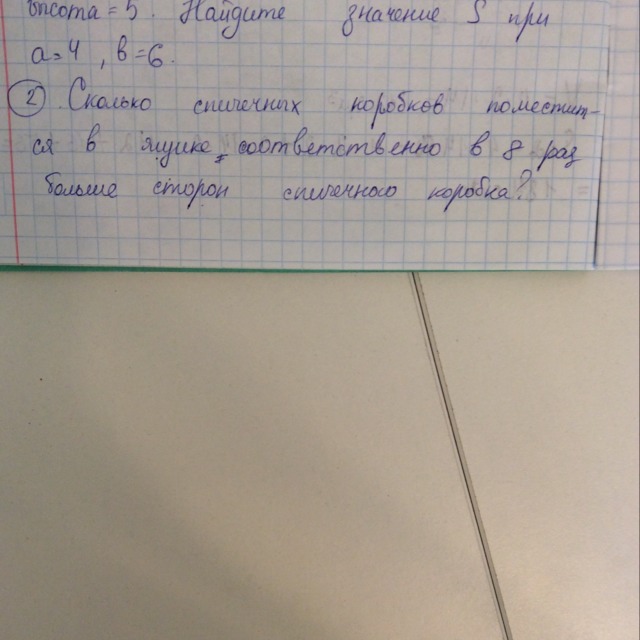 высота = 5. Найдите значение S при
а = 4, в = 6.
2 Сколько спичечных коробков поместит-
ся в ящике, соответственно в 8 раз
больше сторон спичечного коробка?